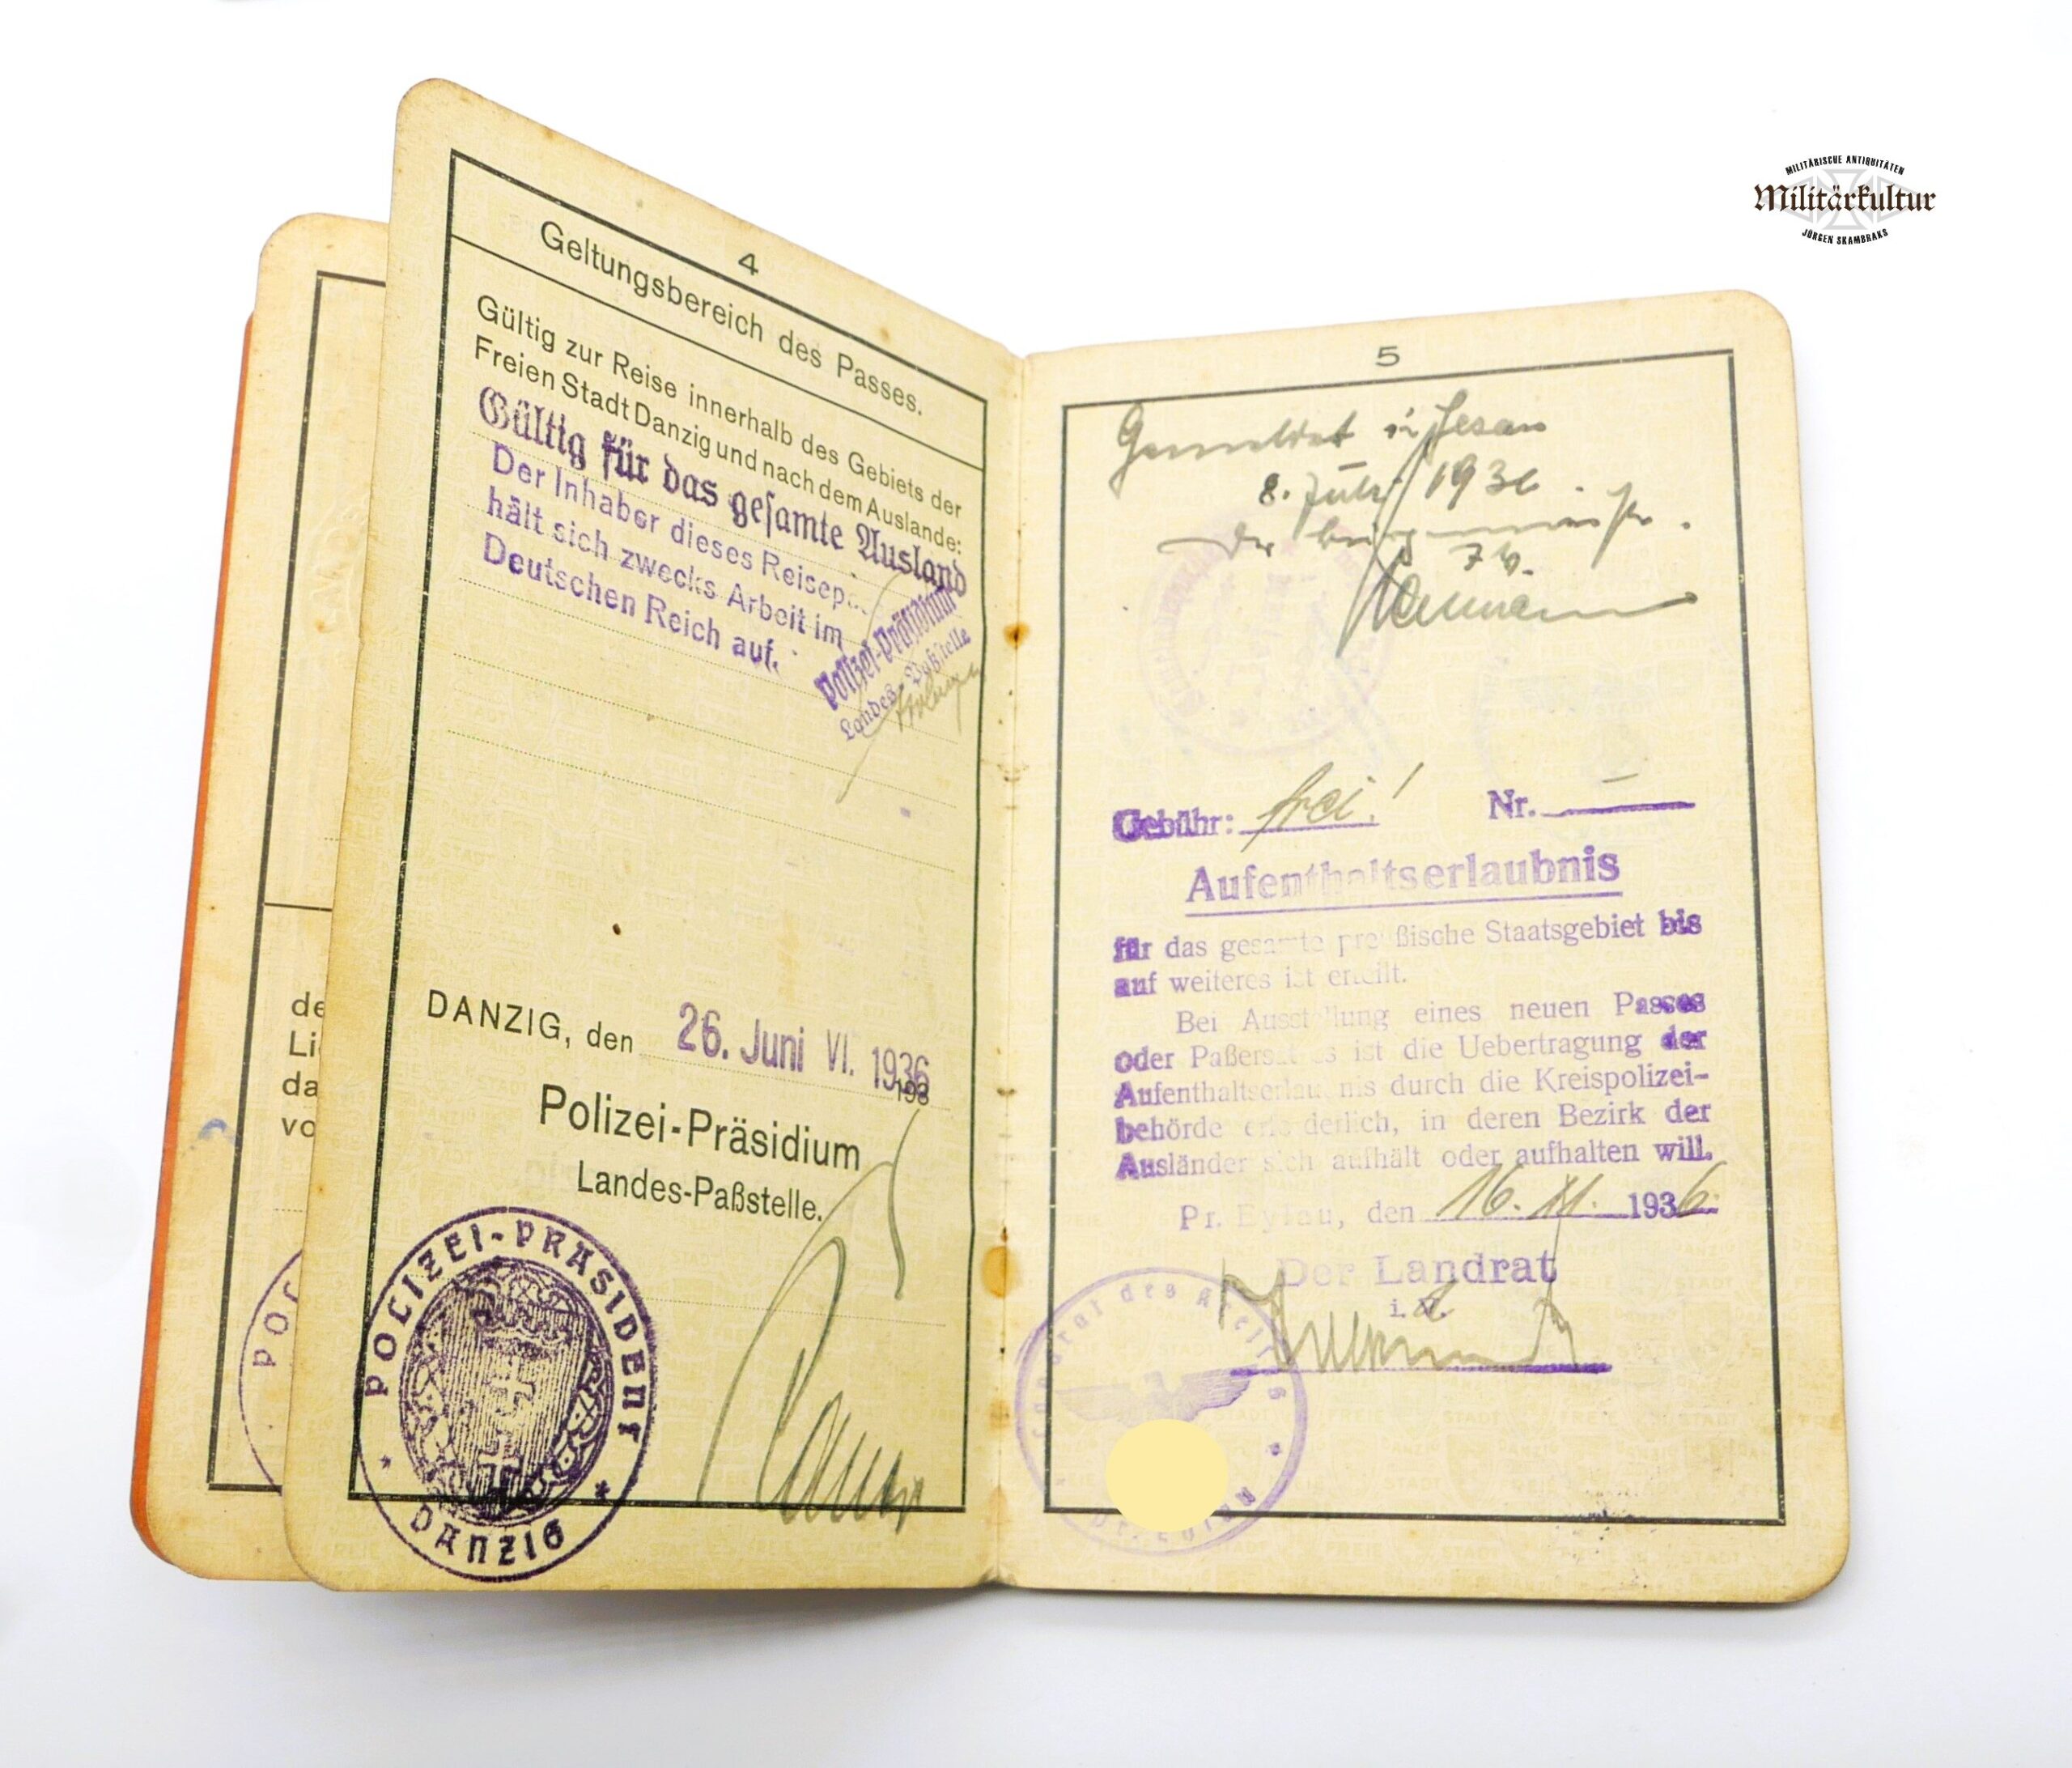 MILITÄRISCHE ANTIQUITÄTEN
Militärkultur
JÜRGEN SKAMBRAKS
de
Li
da
vo
POL
4
Geltungsbereich des Passes.
Gültig zur Reise innerhalb des Gebiets der
Freien Stadt Danzig und nach dem Auslande:
Gültig für das gesamte Ausland
Der Inhaber dieses Reisep
hält sich zwecks Arbeit im
Deutschen Reich auf.
Polizei-Präsidium
Landes-Paßstelle
DANZIG, den 26. Juni VI. 1936
193
Polizei-Präsidium
Landes-Paßstelle.
POLIZEI-PRÄSIDENT
DANZIG
5
Gemeldet in
8. Juli 1936
Der Bürgermeister.
Gebühr: frei! Nr. –
Aufenthaltserlaubnis
für das gesamte preußische Staatsgebiet bis
auf weiteres ist erteilt.
Bei Ausstellung eines neuen Passes
oder Paßersatzes ist die Uebertragung der
Aufenthaltserlaubnis durch die Kreispolizei-
behörde erforderlich, in deren Bezirk der
Ausländer sich aufhält oder aufhalten will.
Pr. Eylau, den 16. 11. 1936.
Der Landrat
i.
Landrat des Kreises
Pr. Eylau